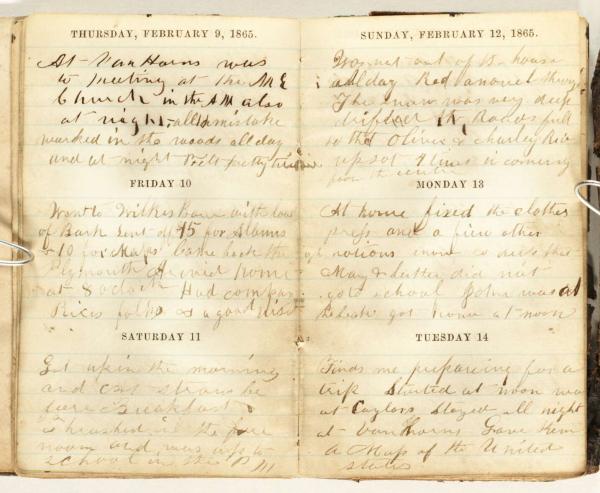 THURSDAY, FEBRUARY 9, 1865.
At VanHorns was
to meeting at the ME
Church in the AM also
at night, all a mistake
worked in the woods all day
and at night Felt pretty tired
FRIDAY 10
Went to Wilkes Barre with load
of Bark sent off 15 for Albums
10 for Maps Came back the
Plymouth arrived home
at 8 oclock Had company
Rices folks
SATURDAY 11
Got up in the morning
and cut straw be
fore Breakfast
Thrashed in the fore
noon and was up to
school in the PM
SUNDAY, FEBRUARY 12, 1865.
Was not out of the house
all day
The snow was very deep
drifted the Roads full
so that Oliver & Charley Rice
upsot 9 times in coming
from the
MONDAY 13
At home fixed the clothes
press and a few other
notions snow so deep that
May & Luther did not
go to school John was at
the got home at noon
TUESDAY 14
Finds me prepareing for a
trip Started at noon was
at Caylors Stayed all night
at VanHorns Gave them
a Map of the United
states